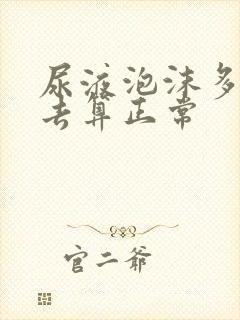 尿液泡沫多
去算正常
官二爷